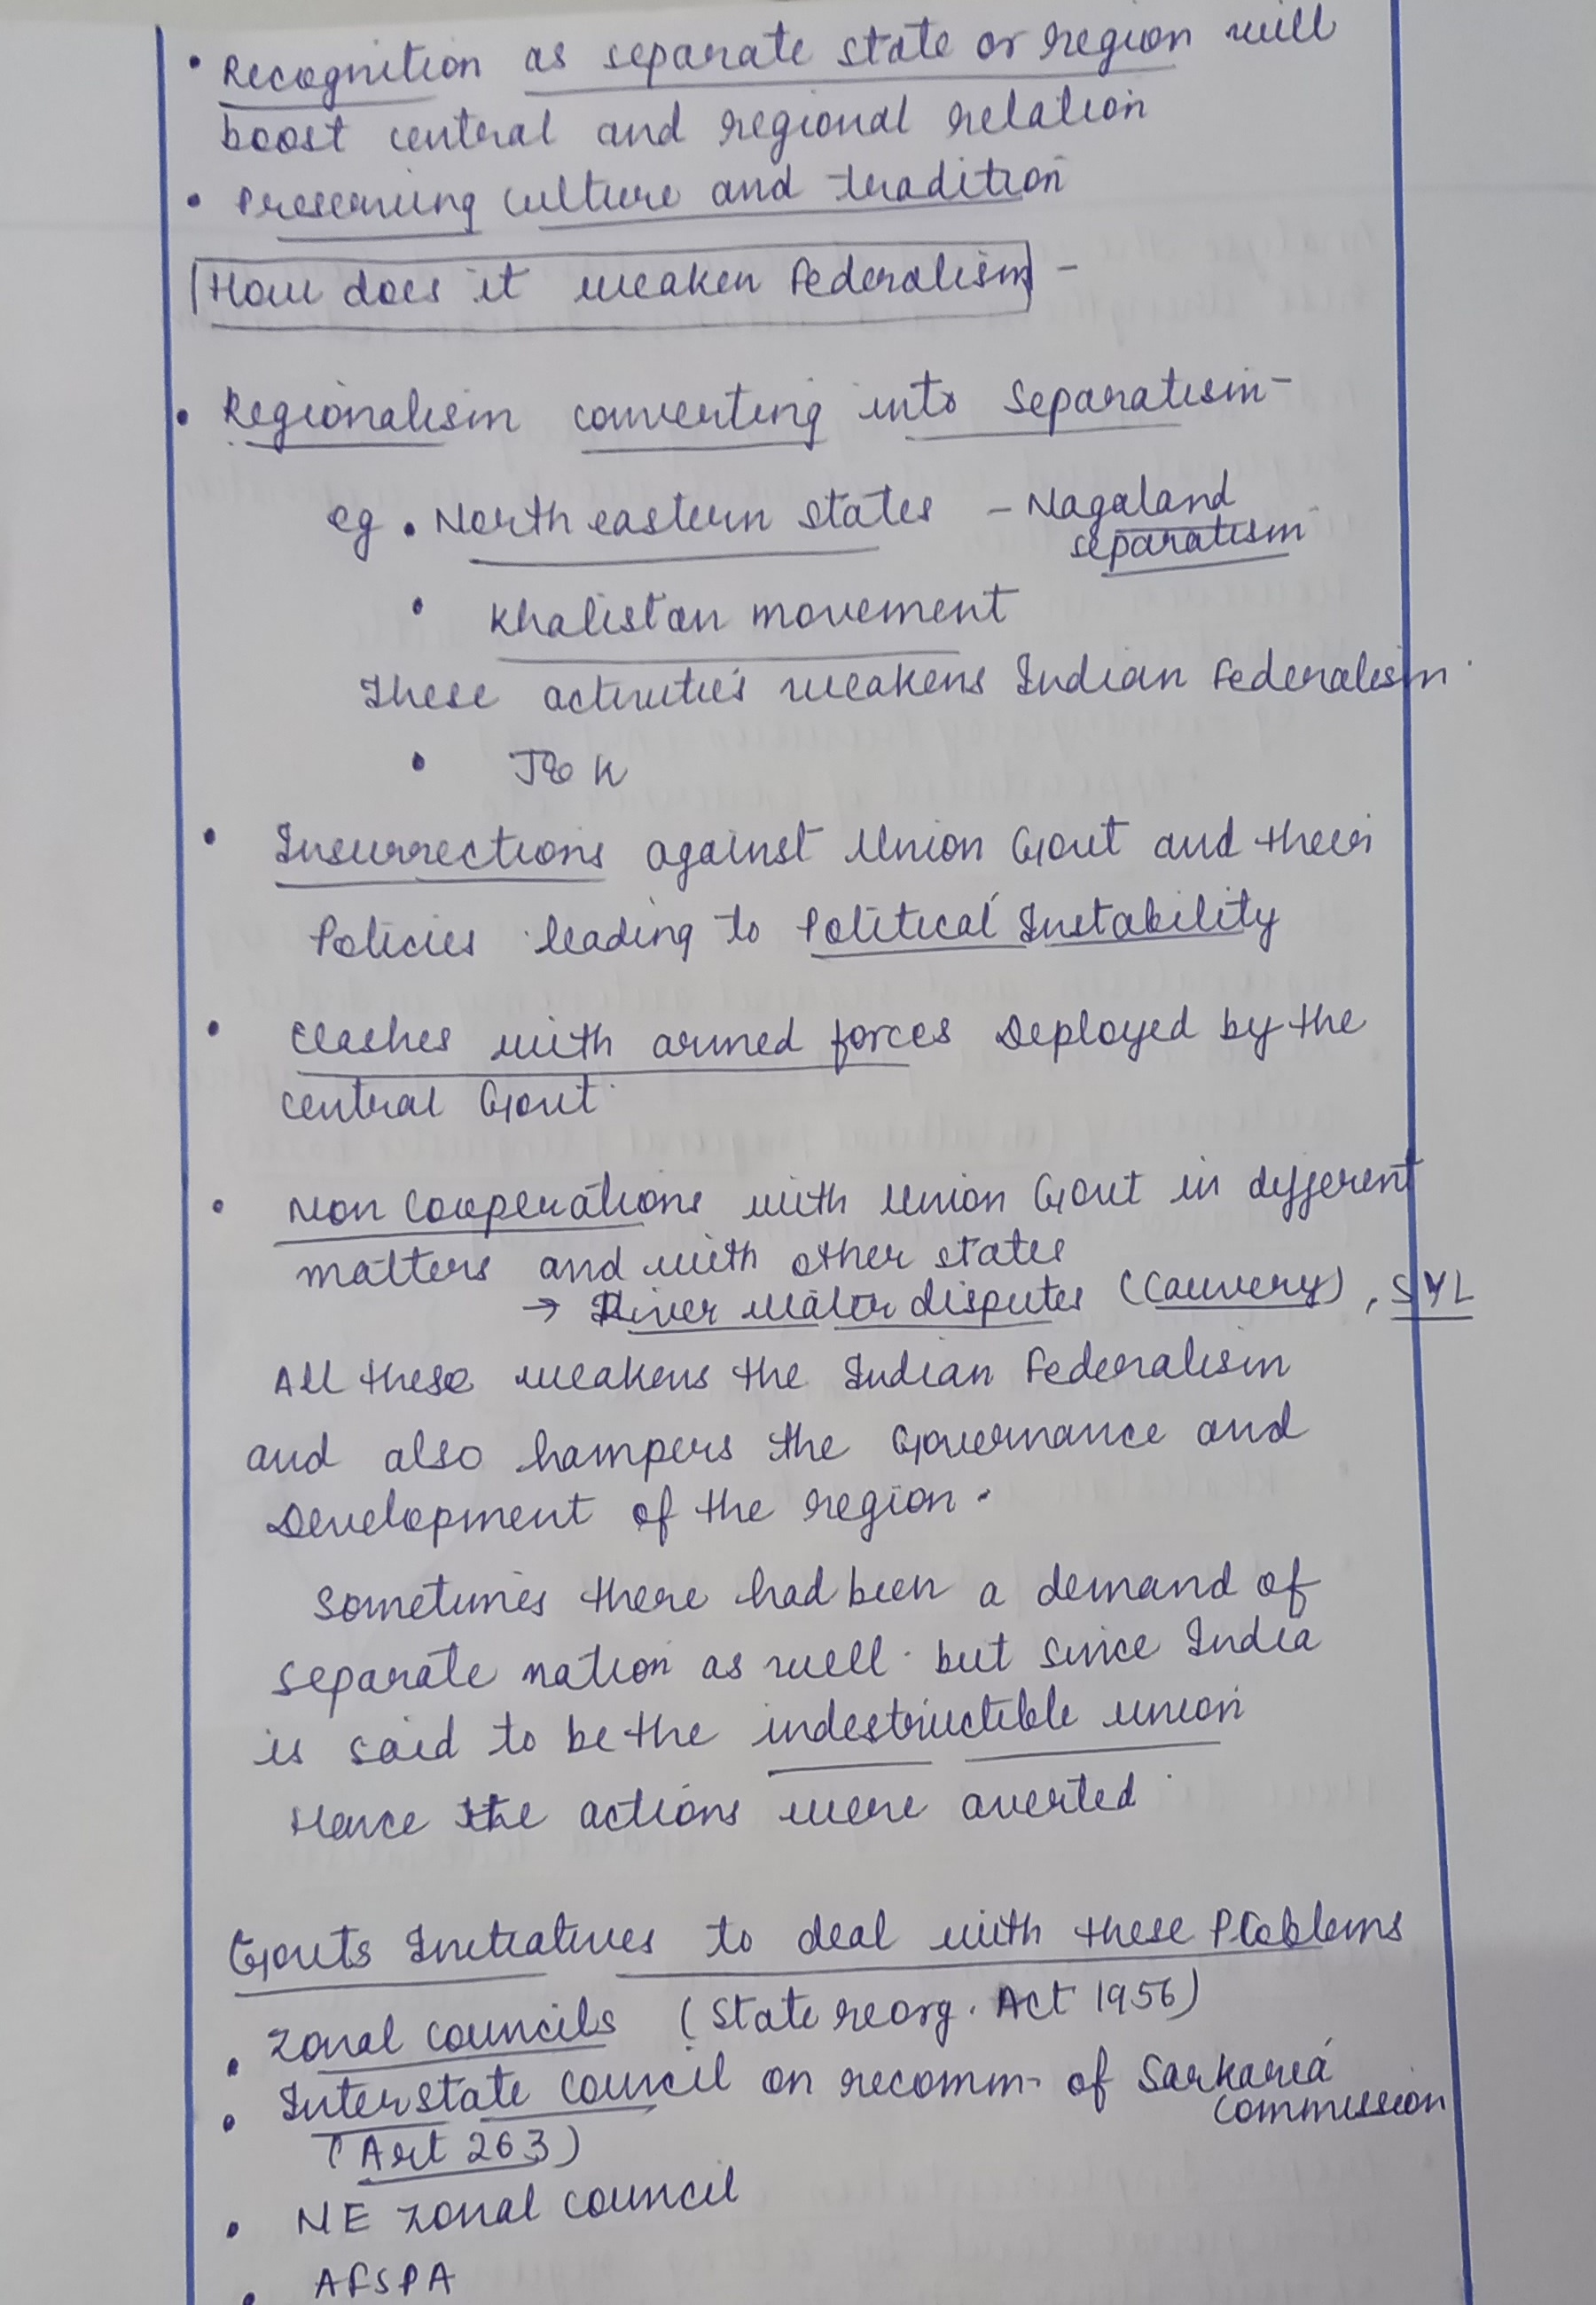 • Recognition as separate state or region will
boost central and regional relation
• Preserving culture and tradition
How does it weaken Federalism -
• Regionalism converting into Separatism -
eg • North eastern states - Nagaland
separatism
• Khalistan movement
These activities weakens Indian Federalism.
• J & K
• Insurrections against Union Govt and their
Policies leading to Political Instability
• Clashes with armed forces Deployed by the
central Govt.
• Non Cooperations with Union Govt in different
matters and with other states
→ River Water disputes (Cauvery), SYL
All these weakens the Indian Federalism
and also hampers the Governance and
Development of the region.
Sometimes there had been a demand of
separate nation as well. but since India
is said to be the indestructible union
Hence the actions were averted.
Govts Initiatives to deal with these Problems
• Zonal Councils (State reorg. Act 1956)
• Interstate Council on recomm- of Sarkaria
Commission
(Art 263)
• NE Zonal Council
• AFSPA